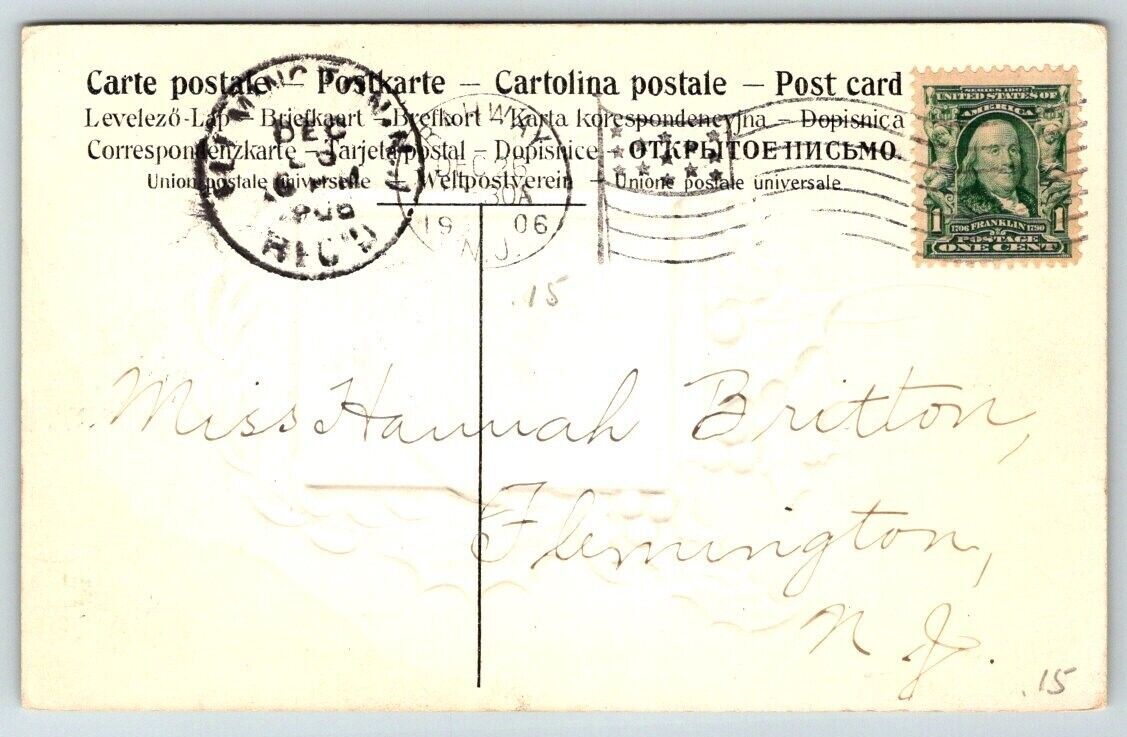 Carte postale – Postkarte – Cartolina postale – Post card
Levelező-Lap – Briefkaart – Brefkort – Karta korespondencyjna – Dopisnica
Correspondenzkarte – Tarjeta postal – Dopisnice – ОТКРЫТОЕ ПИСЬМО.
Union postale universelle – Weltpostverein – Unione postale universale.
FLEMINGTON, N.J.
DEC
1906
REC'D.
RAHWAY
DEC
30A
19 06
N.J.
SERIES 1902
UNITED STATES OF
AMERICA
1706 FRANKLIN 1790
1 1
POSTAGE
ONE CENT
.15
Miss Hannah Britton,
Flemington,
N J.
.15